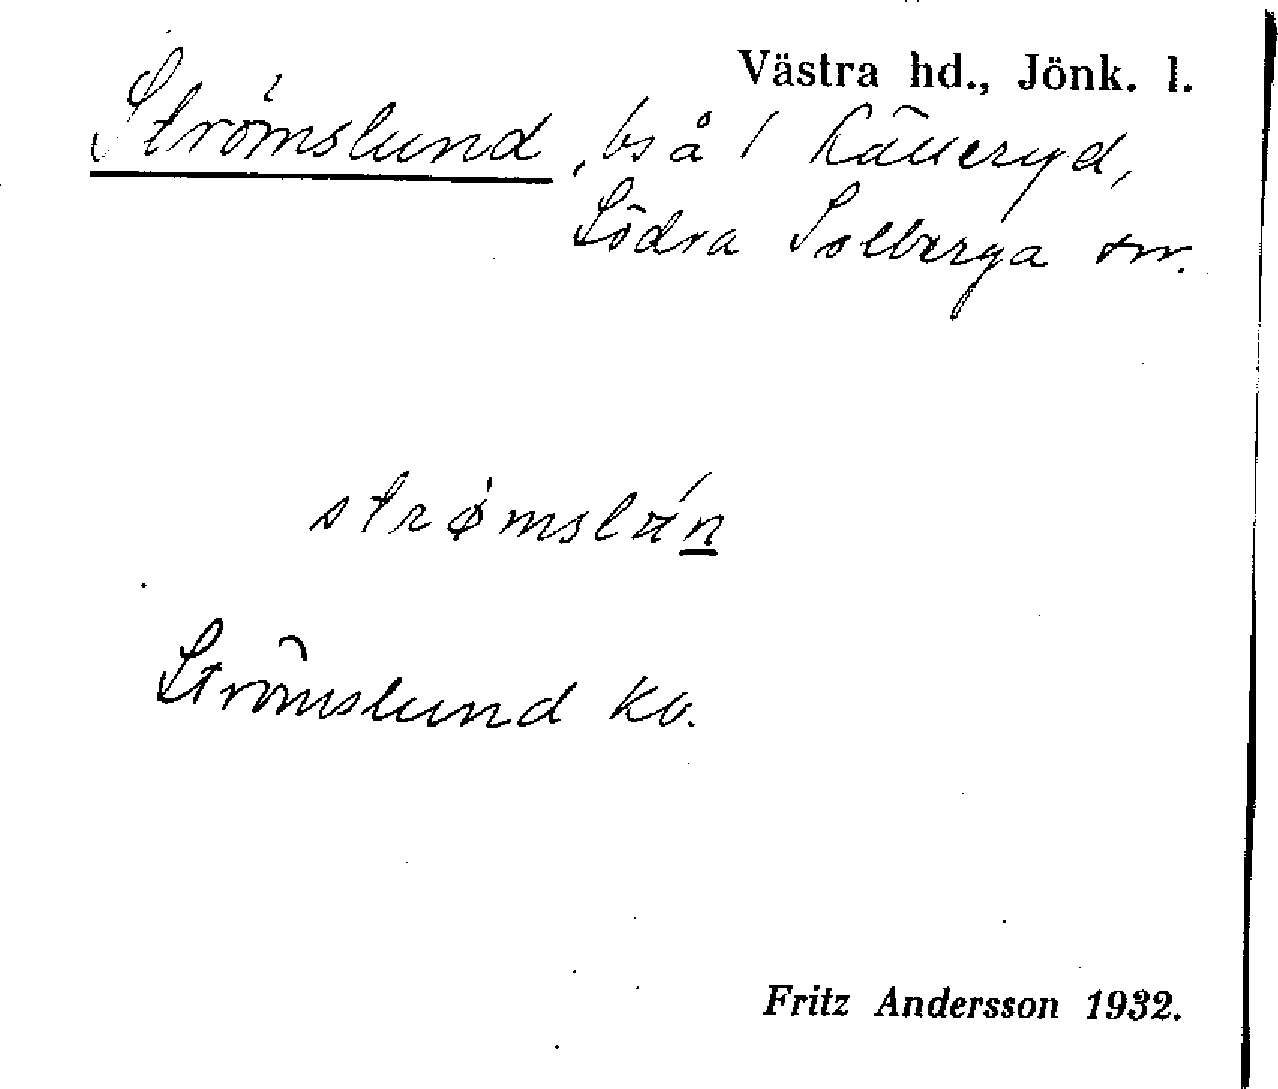 Västra hd., Jönk. l.
Strömslund, bs å 1 Källeryd,
Södra Solberga sn.
strømslan
Strömslund kb.
Fritz Andersson 1932.